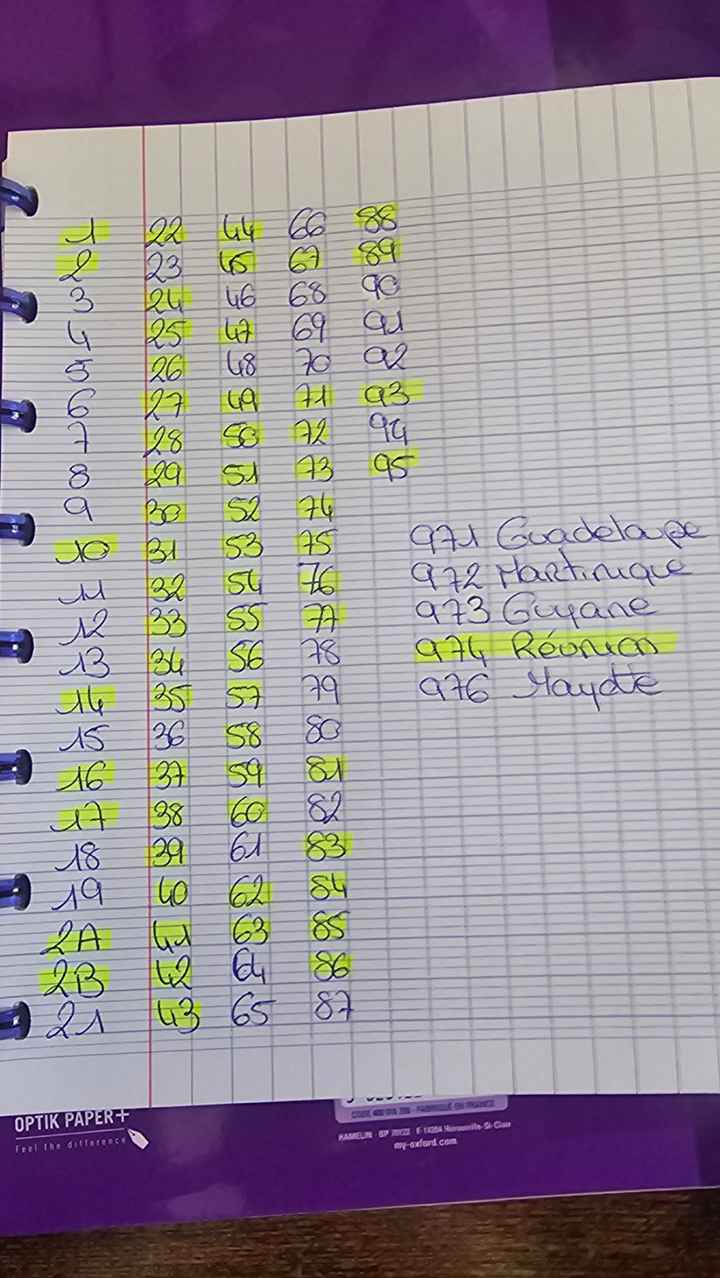 1 22 44 66 88
2 23 45 67 89
3 24 46 68 90
4 25 47 69 91
5 26 48 70 92
6 27 49 71 93
7 28 50 72 94
8 29 51 73 95
9 30 52 74
10 31 53 75 971 Guadeloupe
11 32 54 76 972 Martinique
12 33 55 77 973 Guyane
13 34 56 78 974 Réunion
14 35 57 79 976 Mayotte
15 36 58 80
16 37 59 81
17 38 60 82
18 39 61 83
19 40 62 84
2A 41 63 85
2B 42 64 86
21 43 65 87
OPTIK PAPER+
Feel the difference
my-oxford.com